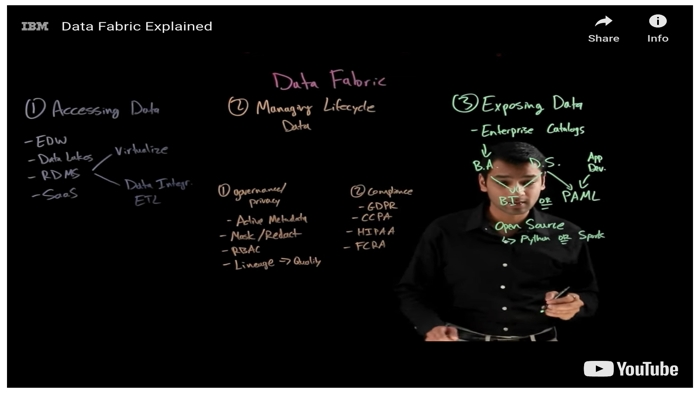 IBM Data Fabric Explained
Share
Info
Data Fabric
① Accessing Data
- EDW
- Data Lakes
- RDMS
- SaaS
Virtualize
Data Integr.
ETL
② Managing Lifecycle
Data
① governance/
privacy
- Active Metadata
- Mask/Redact
- RBAC
- Lineage => Quality
② Compliance
- GDPR
- CCPA
- HIPAA
- FCRA
③ Exposing Data
- Enterprise Catalogs
B.A.
D.S.
App
Dev.
B.I. OR PAML
. Open Source
↳ Python OR Spark
YouTube